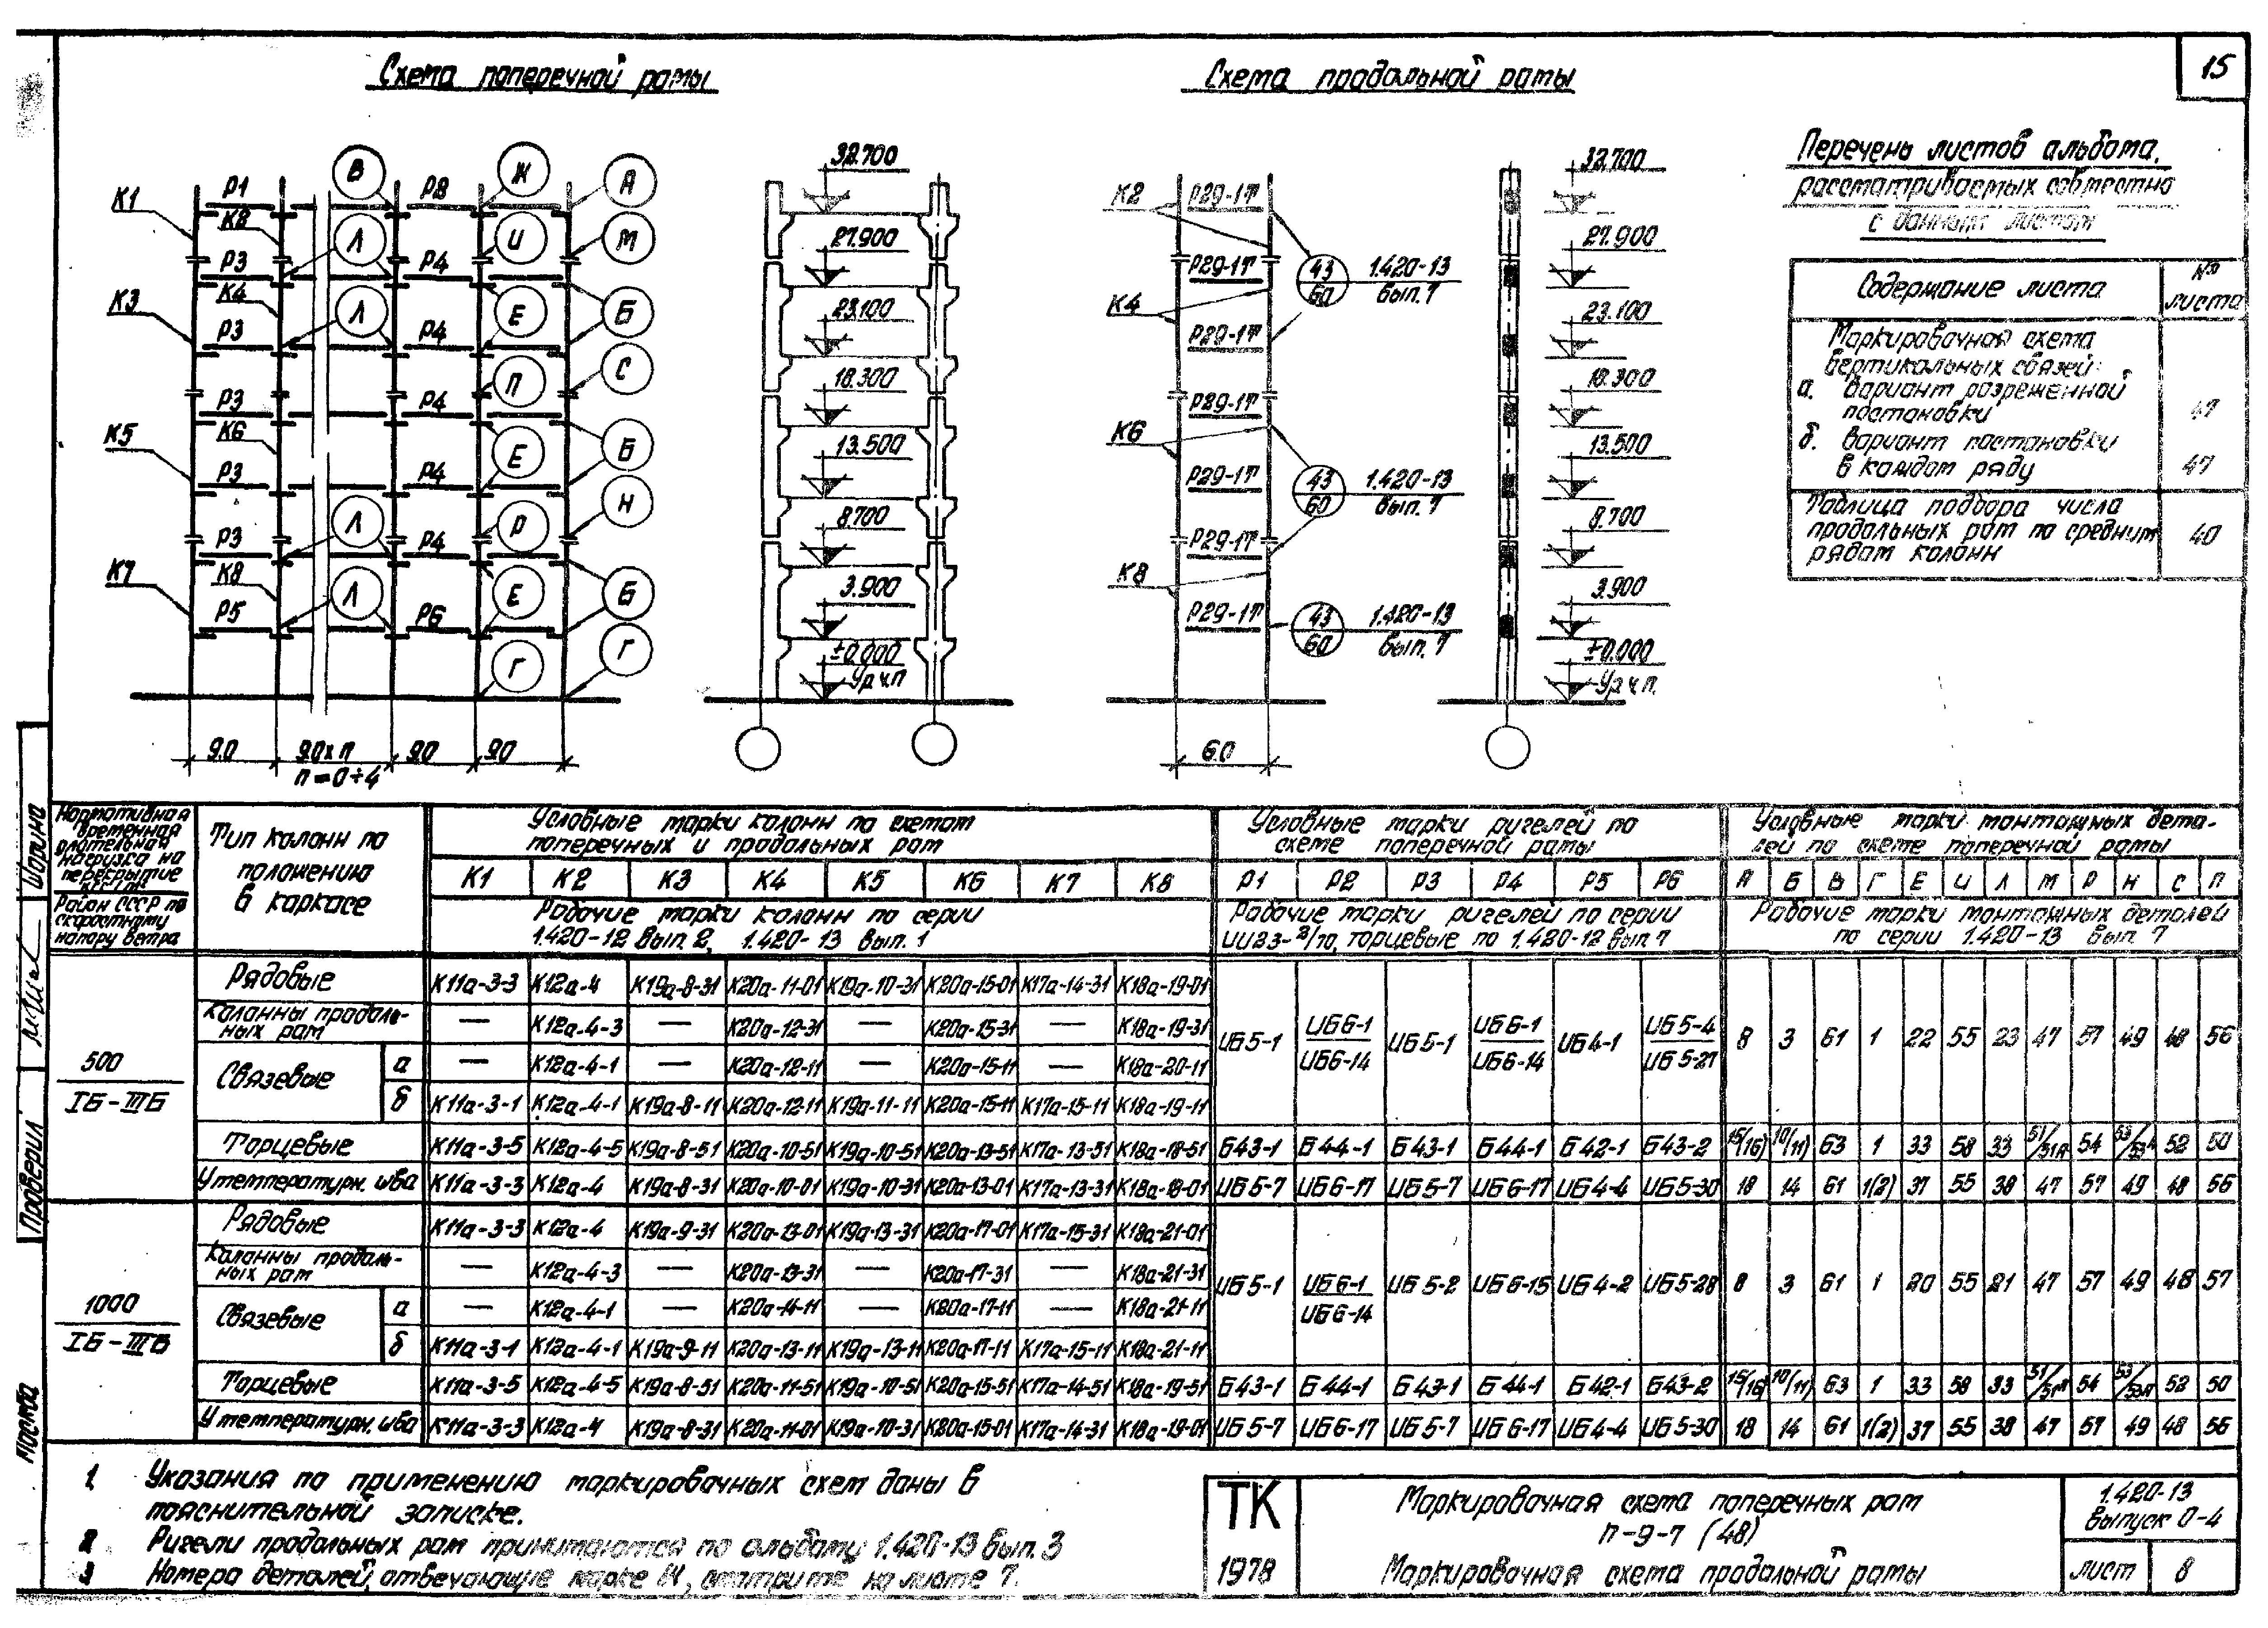 15
Схема поперечной рамы
Схема продольной рамы
Перечень листов альбома,
рассматриваемых совместно
с данным листом
Содержание листа
№ листа
Маркировочная схема
вертикальных связей:
а. вариант разреженной
постановки 47
б. вариант постановки
в каждом ряду 47
Таблица подбора числа
продольных рам по средним
рядам колонн
40
К1 Р1 К8 В Р8 Ж А
Л И М
Р3 Р4
К3 К4 Л Е Б
Р3 Р4
П С
Р3 Р4
К5 К6 Е Б
Р3 Р4
Л Р Н
Р3 Р4
К7 К8 Л Е Б
Р5 Р6
Г Г
9.0 9.0хп 9.0 9.0
п=0÷4
32.700
27.900
23.100
18.300
13.500
8.700
3.900
±0.000
Ур.ч.п.
К2 Р29-1т
Р29-1т 43/60 1.420-13 вып. 7
К4
Р29-1т
Р29-1т
К6
Р29-1т 43/60 1.420-13 вып. 7
Р29-1т
К8
Р29-1т 43/60 1.420-13 вып. 7
6.0
32.700
27.900
23.100
18.300
13.500
8.700
3.900
±0.000
Ур.ч.п.
Нормативная
временная
длительная
нагрузка на
перекрытие
Район СССР по
скоростному
напору ветра
Тип колонн по
положению
в каркасе
Условные марки колонн по схемам
поперечных и продольных рам
К1 К2 К3 К4 К5 К6 К7 К8
Рабочие марки колонн по серии
1.420-12 вып. 2, 1.420-13 вып. 1
Условные марки ригелей по
схеме поперечной рамы
Р1 Р2 Р3 Р4 Р5 Р6
Рабочие марки ригелей по серии
ИИ23-2/70, торцевые по 1.420-12 вып. 7
Условные марки монтажных дета-
лей по схеме поперечной рамы
А Б В Г Е И Л М Р Н С П
Рабочие марки монтажных деталей
по серии 1.420-13 вып. 7
500
IБ-IIIБ
Рядовые К11а-3-3 К12а-4 К19а-8-31 К20а-11-01 К19а-10-31 К20а-15-01 К17а-14-31 К18а-19-01
Колонны продоль-
ных рам — К12а-4-3 — К20а-12-31 — К20а-15-31 — К18а-19-31
Связевые а — К12а-4-1 — К20а-12-11 — К20а-15-11 — К18а-20-11
б К11а-3-1 К12а-4-1 К19а-8-11 К20а-12-11 К19а-11-11 К20а-15-11 К17а-15-11 К18а-19-11
ИБ5-1 ИБ6-1/ИБ6-14 ИБ5-1 ИБ6-1/ИБ6-14 ИБ4-1 ИБ5-4/ИБ5-27 8 3 61 1 22 55 23 47 57 49 48 56
Торцевые К11а-3-5 К12а-4-5 К19а-8-51 К20а-10-51 К19а-10-51 К20а-13-51 К17а-13-51 К18а-18-51 Б43-1 Б44-1 Б43-1 Б44-1 Б42-1 Б43-2 15/(16) 10/(11) 63 1 33 58 33 51/51п 54 53/53п 52 50
У температурн. шва К11а-3-3 К12а-4 К19а-8-31 К20а-10-01 К19а-10-31 К20а-13-01 К17а-13-31 К18а-18-01 ИБ5-7 ИБ6-17 ИБ5-7 ИБ6-17 ИБ4-4 ИБ5-30 18 14 61 1(2) 37 55 38 47 57 49 48 56
1000
IБ-IIIБ
Рядовые К11а-3-3 К12а-4 К19а-9-31 К20а-13-01 К19а-13-31 К20а-17-01 К17а-15-31 К18а-21-01
Колонны продоль-
ных рам — К12а-4-3 — К20а-13-31 — К20а-17-31 — К18а-21-31
Связевые а — К12а-4-1 — К20а-14-11 — К20а-17-11 — К18а-21-11
б К11а-3-1 К12а-4-1 К19а-9-11 К20а-13-11 К19а-13-11 К20а-17-11 К17а-15-11 К18а-21-11
ИБ5-1 ИБ6-1/ИБ6-14 ИБ5-2 ИБ6-15 ИБ4-2 ИБ5-28 8 3 61 1 20 55 21 47 57 49 48 57
Торцевые К11а-3-5 К12а-4-5 К19а-8-51 К20а-11-51 К19а-10-51 К20а-15-51 К17а-14-51 К18а-19-51 Б43-1 Б44-1 Б43-1 Б44-1 Б42-1 Б43-2 15/(16) 10/(11) 63 1 33 58 33 51/51п 54 53/53п 52 50
У температурн. шва К11а-3-3 К12а-4 К19а-8-31 К20а-11-01 К19а-10-31 К20а-15-01 К17а-14-31 К18а-19-01 ИБ5-7 ИБ6-17 ИБ5-7 ИБ6-17 ИБ4-4 ИБ5-30 18 14 61 1(2) 37 55 38 47 57 49 48 56
1 Указания по применению маркировочных схем даны в
пояснительной записке.
2 Ригели продольных рам принимаются по альбому 1.420-13 вып. 3
3 Номера деталей, отвечающие марке смотрите на листе 7.
ТК
1978
Маркировочная схема поперечных рам
п-9-7 (48)
Маркировочная схема продольной рамы
1.420-13
Выпуск 0-4
лист 8
Проверил
Шорина